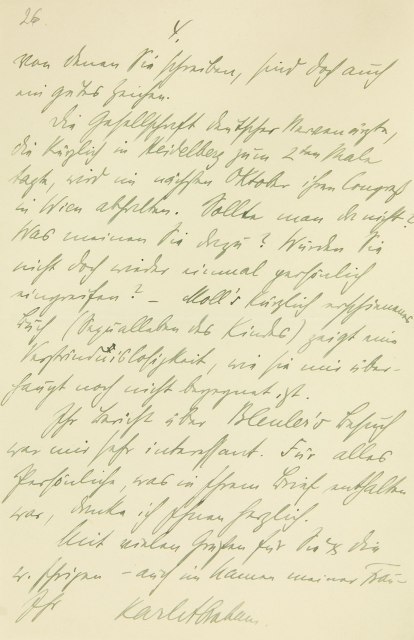 26
4.
von denen Sie schreiben, sind doch auch
ein gutes Zeichen.
Die Gesellschaft deutscher Nervenärzte,
die kürzlich in Heidelberg zum 2ten Male
tagte, wird im nächsten Oktober ihren Congreß
in Wien abhalten. Sollte man da nicht?
Was meinen Sie dazu? Würden Sie
nicht doch wieder einmal persönlich
eingreifen? – Moll's kürzlich erschienenes
Buch (Sexualleben des Kindes) zeigt eine
Verständnislosigkeit, wie sie mir über-
haupt noch nicht begegnet ist.
Ihr Bericht über Bleuler's Besuch
war mir sehr interessant. Für alles
Persönliche, was in Ihrem Brief enthalten
war, danke ich Ihnen herzlich.
Mit vielen Grüßen für Sie und die
Ihrigen – auch im Namen meiner Frau –
Ihr Karl Abraham